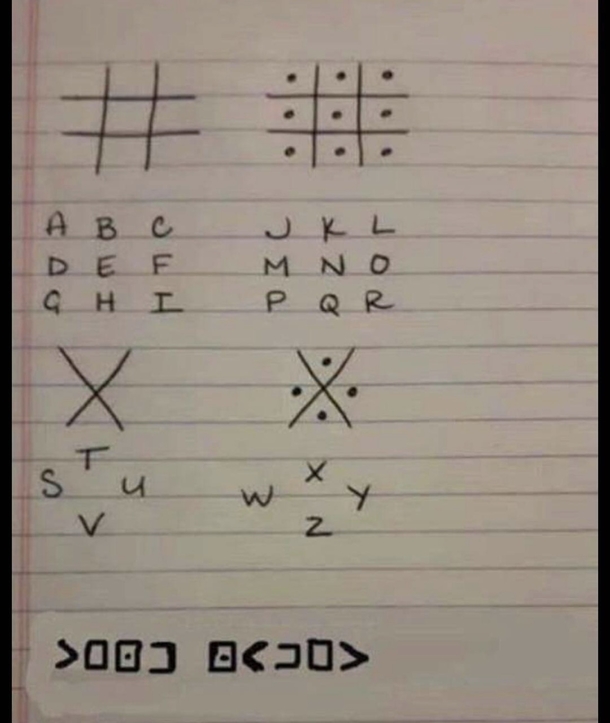 A B C
D E F
G H I
J K L
M N O
P Q R
T
S U
V
X
W Y
Z
>□⊡⊐ ⊡<⊐□>